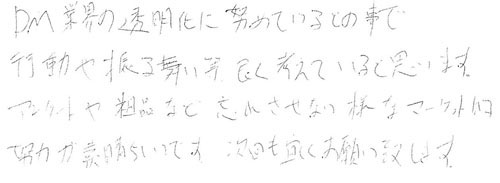 DM業界の透明化に努めているとの事で
行動や振る舞い等良く考えていると思います。
アンケートや粗品など忘れさせない様なマーケットは
努力が素晴らしいです。次回も宜しくお願い致します。